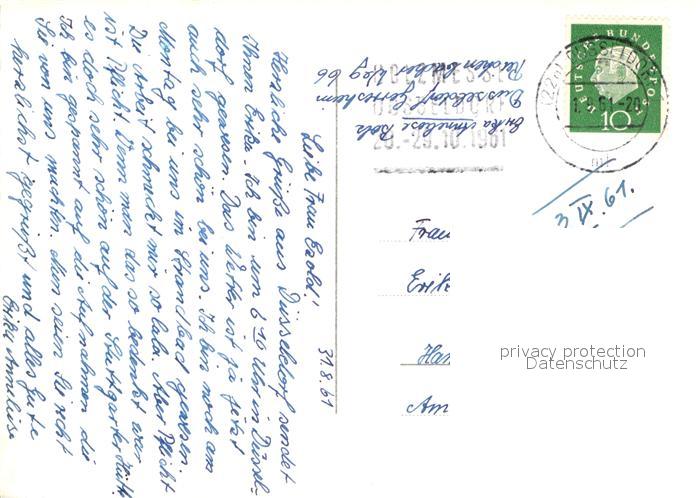 31.8.61
Liebe Frau Ezold!
Herzliche Grüße aus Düsseldorf sendet
Ihnen Erika. Ich bin um 6 Uhr in Düssel-
dorf gewesen. Das Wetter ist ja jetzt
auch sehr schön bei uns. Ich bin noch am
Montag bei uns im Strandbad gewesen.
Die Arbeit schmeckt mir so lala. Aber Pflicht
ist Pflicht. Denn man das so bedenkt war
es doch sehr schön auf der Stuttgarter Hütte
Ich bin gespannt auf die Aufnahmen die
Sie von uns machten. Nun seien Sie recht
herzlichst gegrüßt und alles Gute
Erika Annliese
Erika Annelose Bols
Düsseldorf Gerresheim
Reichenbacher Weg 66
HOLZMESSE
DÜSSELDORF
20.-29.10.1961
DEUTSCHE BUNDESPOST
10
(22a) DÜSSELDORF
1.9.61-20
mi
3 IX. 61.
Frau
Erik
Han
Am
privacy protection
Datenschutz